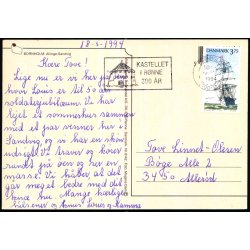 BORNHOLM. Allinge-Sandvig
18-5-1994
Kære Tove!
Lige nu er vi her på
hvor Louis er til 50 års
soldaterjubilæum. Vi har
lejet et sommerhus sammen
med et par venner her i
Sandvig, og vi har en skøn
udsigt. Vi traver og kører
rundt på øen og ser en
masse. Vi håber at det
går meget bedre med dig
nu. Mange kærlige
hilsener og Louis
KASTELLET
I RØNNE
300 ÅR
DANMARK 3.75
Tove Linnet-Olesen
Bøge Alle 2
3450 Allerød